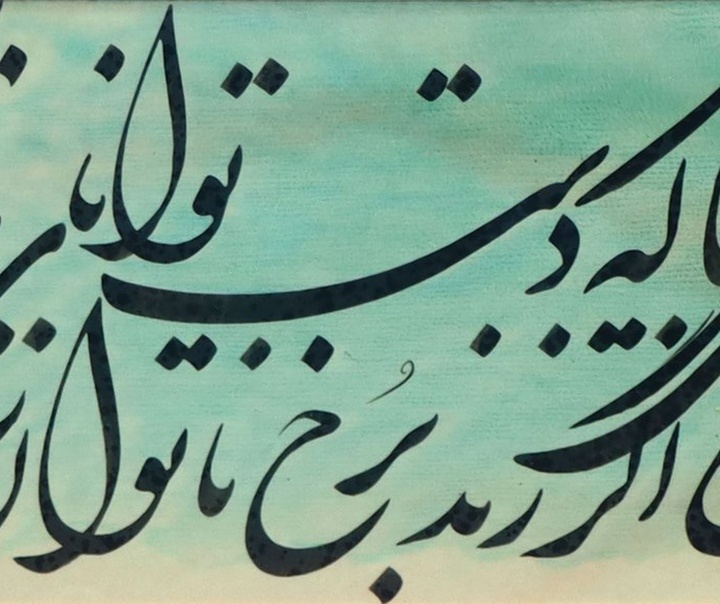 که دست توانا
اگر زند برخ ناتوان